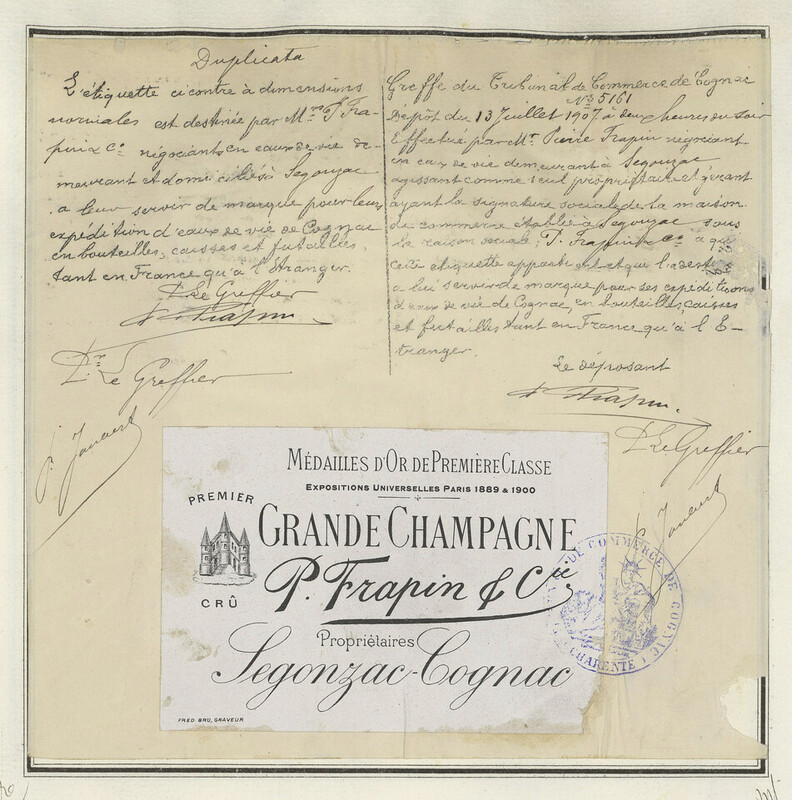 Duplicata
L'étiquette ci contre à dimensions
normales est destinée par Mrs P. Fra-
pin & Co négociants en eaux de vie de-
meurant et domiciliés à Segonzac
a leur servir de marque pour leur
expédition d'eaux de vie de Cognac
en bouteilles, caisses et futailles
tant en France qu'à l'étranger.
Pr Le Greffier
P. Frapin
Pr Le Greffier
Greffe du Tribunal de Commerce de Cognac
No 5161
Dépôt du 13 Juillet 1907 à deux heures du soir
Effectué par Mr. Pierre Frapin négociant
en eaux de vie demeurant à Segonzac
agissant comme seul propriétaire et gérant
ayant la signature sociale de la maison
de commerce établie à Segonzac sous
la raison sociale: P. Frapin & Co a qui
cette étiquette appartient et qui
a lui servir de marque pour ses expéditions
d'eaux de vie de Cognac, en bouteilles, caisses
et futailles tant en France qu'à l'E-
tranger.
Le déposant
P. Frapin
Pr Le Greffier
MÉDAILLES D'OR DE PREMIÈRE CLASSE
EXPOSITIONS UNIVERSELLES PARIS 1889 & 1900
PREMIER
CRÛ
GRANDE CHAMPAGNE
P. Frapin & Cie
Propriétaires
Segonzac-Cognac
FRED BRU, GRAVEUR
DE COMMERCE DE COGNAC
CHARENTE